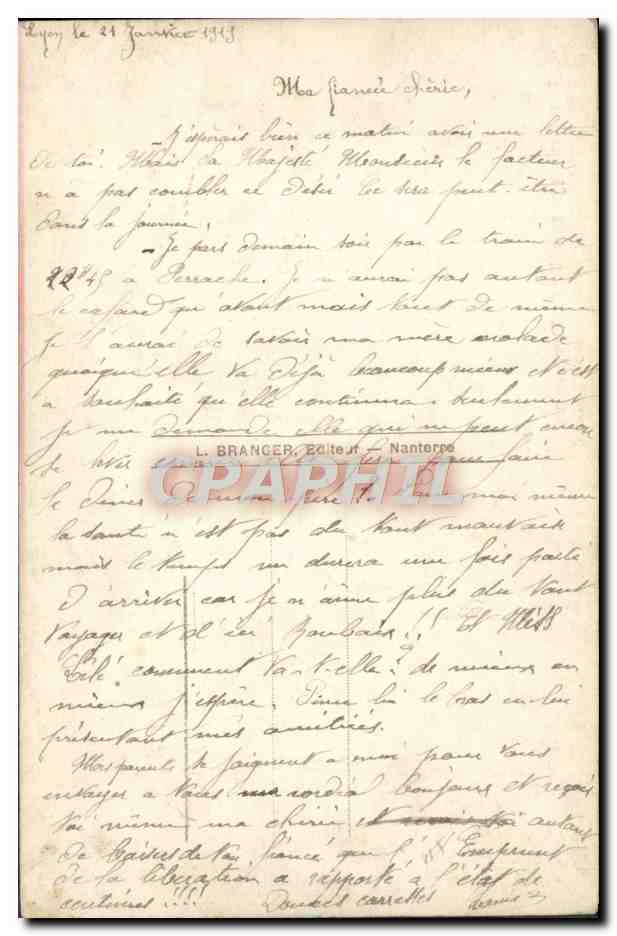 Lyon le 21 Janvier 1919
Ma fiancée chérie,
J'espérais bien ce matin avoir une lettre
de toi. Mais Sa Majesté Monsieur le facteur
n'a pas combler ce désir. Ce sera peut-être
dans la journée.
- Je pars demain soir par le train de
22h45 à Perrache. Je n'aurai pas autant
le cafard qu'avant mais tout de même
je l'aurai de savoir ma mère malade
quoiqu'elle va déjà beaucoup mieux
a souhaité qu'elle continue seulement
je me demande elle qui ne peut encore
se lever
L. BRANGER, Editeur — Nanterre
CPAPHIL
le diner de mon père ? moi même
la santé n'est pas du tout mauvaise
mais le temps me durera une fois parti
d'arriver car je n'aime plus du tout
voyager et d'ici Roubaix !! Et Miss
Lélé comment va-t-elle ? de mieux en
mieux j'espère. Serre lui le bras en lui
présentant mes amitiés.
Mes parents se joignent à moi pour vous
envoyer à vous cordial bonjour et reçois
toi même ma chérie autant
de baisers de ton fiancé que l' Emprunt
de la libération a rapporté à l'état de
centimes !!!! Douces caresses